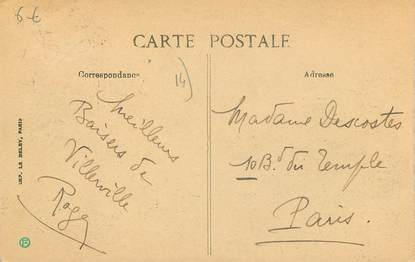 6 €
CARTE POSTALE
Correspondance
Adresse
14)
Meilleurs
Baisers de
Villerville
Roger
Madame Descostes
10 Bd du Temple
Paris.
IMP. LE DELEY, PARIS